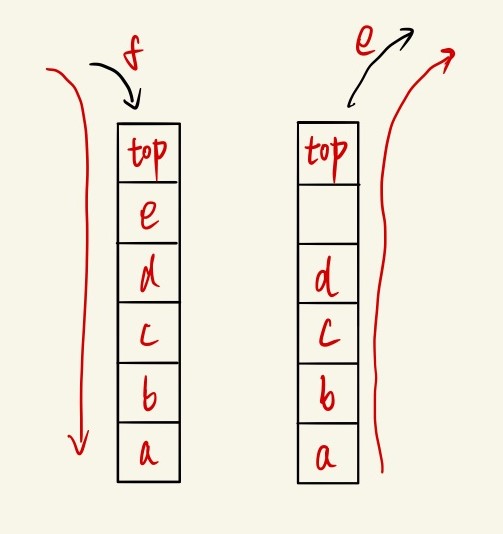 f
e
top
e
d
c
b
a
top
d
c
b
a